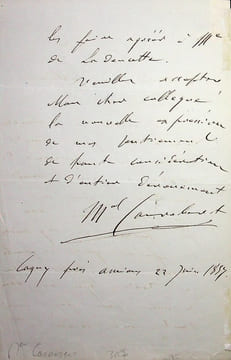 les faire agréer à Mme
de Ladoucette.
Veuillez accepter
Mon cher collègue
la nouvelle expression
de mes sentiments
de haute considération
et d'entier dévouement
Mal Canrobert
près amiens 22 juin 1857.